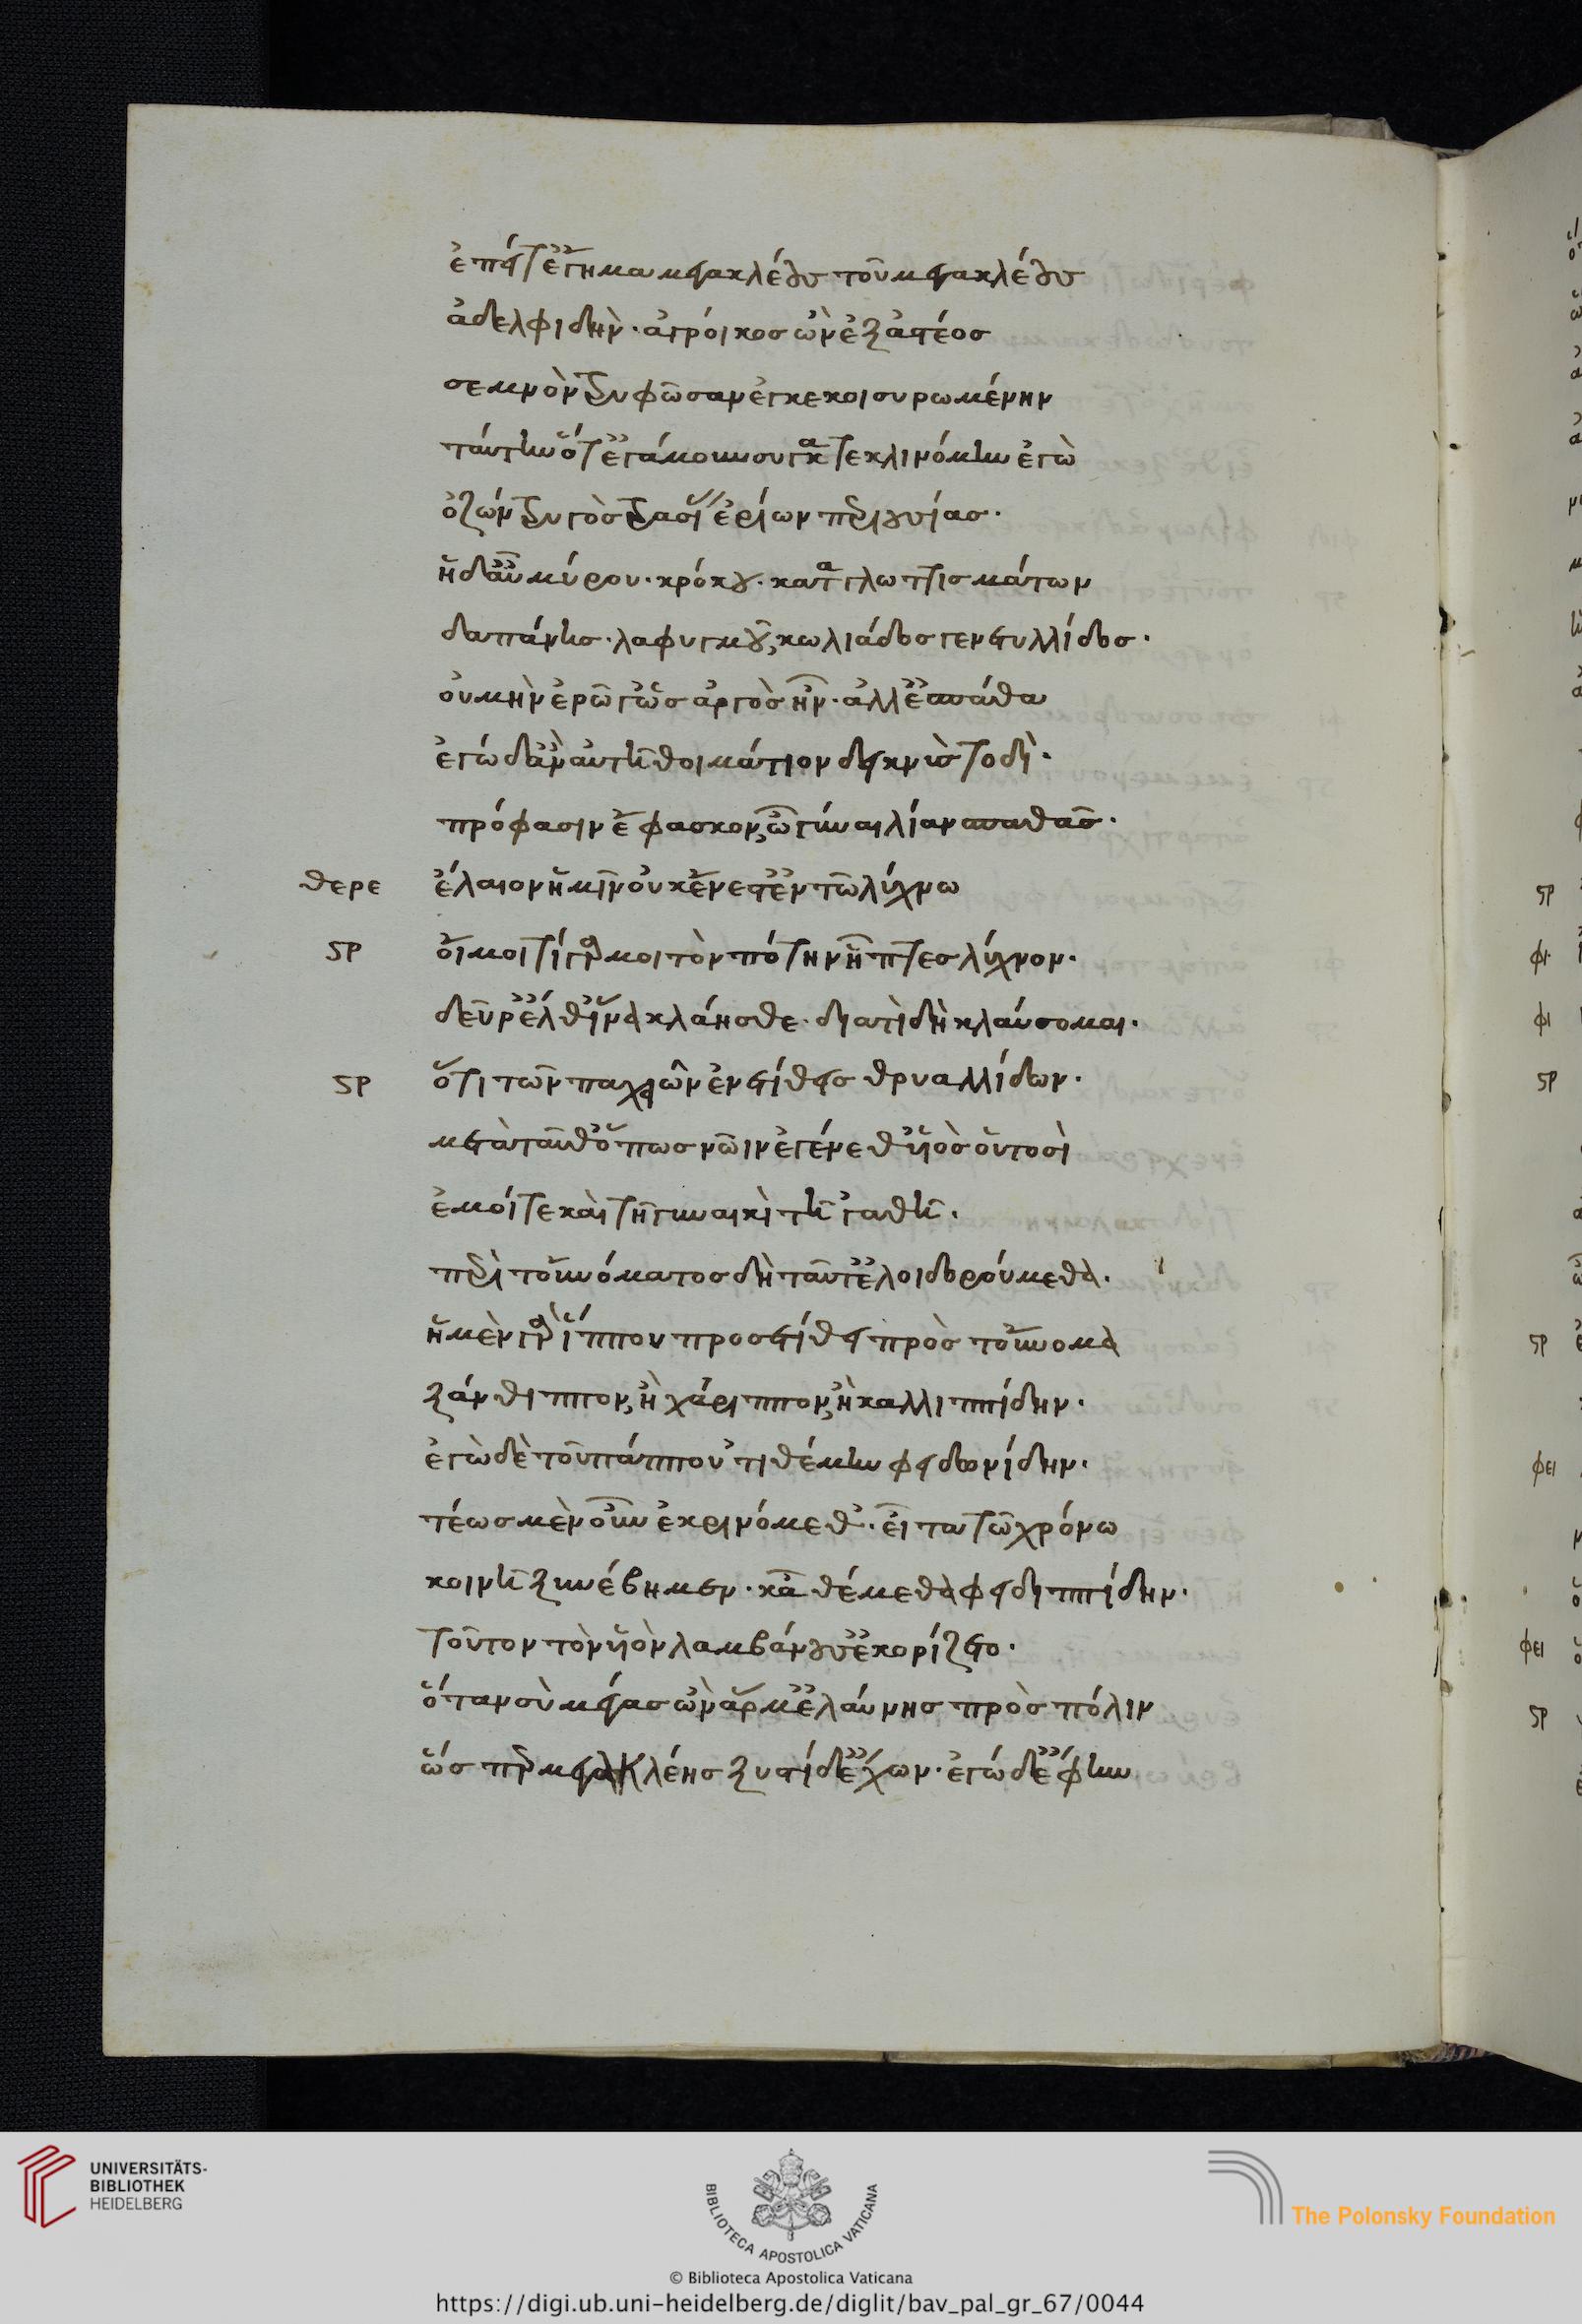 ἐπεί τ' ἔγημα μεγακλέους τοῦ μεγακλέους
ἀδελφιδὴν. ἄγροικος ὢν ἐξ ἄστεος
σεμνὸν τρυφῶσαν ἐγκεκοισυρωμένην
ταύτην ὅτ' ἐγάμουν συγκατεκλινόμην ἐγὼ
ὄζων τρυγὸς τρασιᾶς ἐρίων περιουσίας.
ἡ δ' αὖ μύρου. κρόκου. καταγλωττισμάτων
δαπάνης. λαφυγμοῦ, κωλιάδος γενετυλλίδος.
οὐ μὴν ἐρῶ γ' ὡς ἀργὸς ἦν. ἀλλ' ἐσπάθα
ἐγὼ δ' ἂν αὐτῇ θοἰμάτιον δεικνὺς τοδὶ.
πρόφασιν ἔφασκον, ὦ γύναι λίαν σπαθᾶς.
θερε ἔλαιον ἡμῖν οὐκ ἔνεστ' ἐν τῷ λύχνω
ϛρ οἴμοι τί γάρ μοι τὸν πότην ἧπτες λύχνον.
δεῦρ' ἔλθ' ἵνα κλάῃς θε. διατὶ δὴ κλαύσομαι.
ϛρ ὅτι τῶν παχειῶν ἐνετίθεις θρυαλλίδων.
μετὰ ταῦθ' ὅπως νῶιν ἐγένεθ' ὑὸς οὑτοσὶ
ἐμοί τε καὶ τῆ γυναικὶ τῆ 'γαθῆ.
περὶ τοὐνόματος δὴ ταῦτ' ἐλοιδορούμεθα.
ἡ μὲν γὰρ ἵππον προσετίθει πρὸς τοὔνομα
ξάνθιππον, ἢ χάριππον, ἢ καλλιππίδην.
ἐγὼ δὲ τοῦ πάππου 'τιθέμην φειδωνίδην.
τέως μὲν οὖν ἐκρινόμεθ'. εἶτα τῶ χρόνω
κοινῇ ξυνέβημεν. κἀθέμεθα φειδιππίδην.
τοῦτον τὸν ὑὸν λαμβάνουσ' ἐκορίζετο.
ὅταν σὺ μέγας ὢν ἅρμ' ἐλαύνης πρὸς πόλιν
ὥσπερ μεγακλέης ξυστίδ' ἔχων. ἐγὼ δ' ἔφην
ϛρ
φι
φι
ϛρ
ϛρ
φει
φει
ϛρ
UNIVERSITÄTS-
BIBLIOTHEK
HEIDELBERG
BIBLIOTECA APOSTOLICA VATICANA
The Polonsky Foundation
© Biblioteca Apostolica Vaticana
https://digi.ub.uni-heidelberg.de/diglit/bav_pal_gr_67/0044